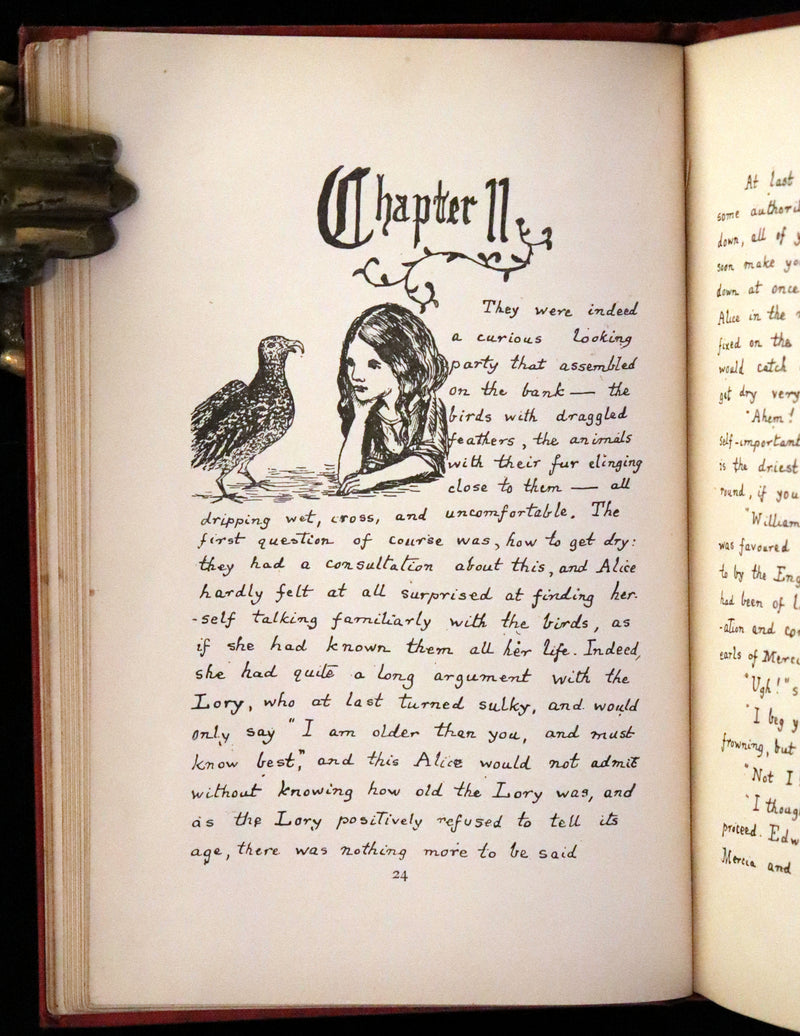 Chapter II
They were indeed
a curious looking
party that assembled
on the bank — the
birds with draggled
feathers, the animals
with their fur clinging
close to them — all
dripping wet, cross, and uncomfortable. The
first question of course was, how to get dry:
they had a consultation about this, and Alice
hardly felt at all surprised at finding her-
-self talking familiarly with the birds, as
if she had known them all her life. Indeed,
she had quite a long argument with the
Lory, who at last turned sulky, and would
only say "I am older than you, and must
know best," and this Alice would not admit
without knowing how old the Lory was, and
as the Lory positively refused to tell its
age, there was nothing more to be said
24
At last
some
down, all of
soon make
down at once
Alice in the
fixed on the
would catch
get dry very
"Ahem!
self-important
is the driest
round, if you
"William
was favoured
to by the
had been of
-ation and
earls of
"Ugh!"
"I beg
frowning, but
"Not I
"I
proceed.
Mercia and